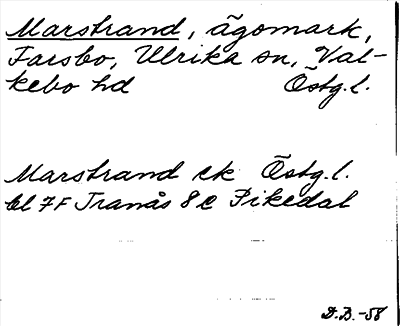 Marstrand, ägomark,
Farsbo, Ulrika sn, Val-
kebo hd Östg.l.
Marstrand ek Östg.l.
bl 7F Tranås 8 e Pikedal
D.B.-58